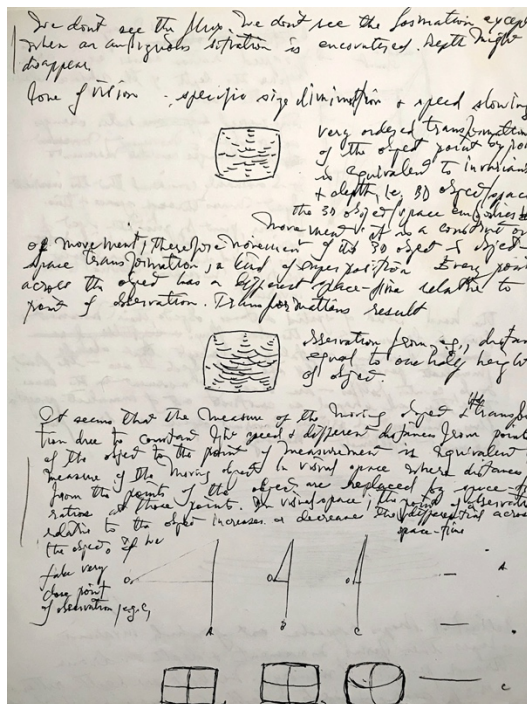 We don't see the flux. We don't see the formation except
when an ambiguous situation is encountered. Depth might
disappear.
Cone of vision - specific size diminution + speed slowing
very ordered transformation
of the object point by point
is equivalent to invariant
+ depth, i.e. 3D object/space
the 3D object/space
movement, it is a construct
of movement, therefore movement of the 3D object & object
space transformation, a kind of superposition. Every point
across the object has a different space-time relative to
point of observation. Transformations result
observation from, e.g., distance
equal to one half height
of object.
It seems that the measure of the moving object &
due to constant light speed & different distances from points
of the object to the point of measurement is equivalent
measure of the moving object in visual space where distances
from the points of the object are replaced by space-time
ratios at those points. In visual space, the point of observation
relative to the object increases or decreases the differential across
the object. If we space-time
take very
close point
of observation, e.g. C,
o o o
A B C
A
C